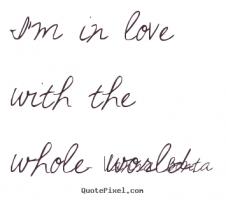 I'm in love
with the
whole world
QuotePixel.com